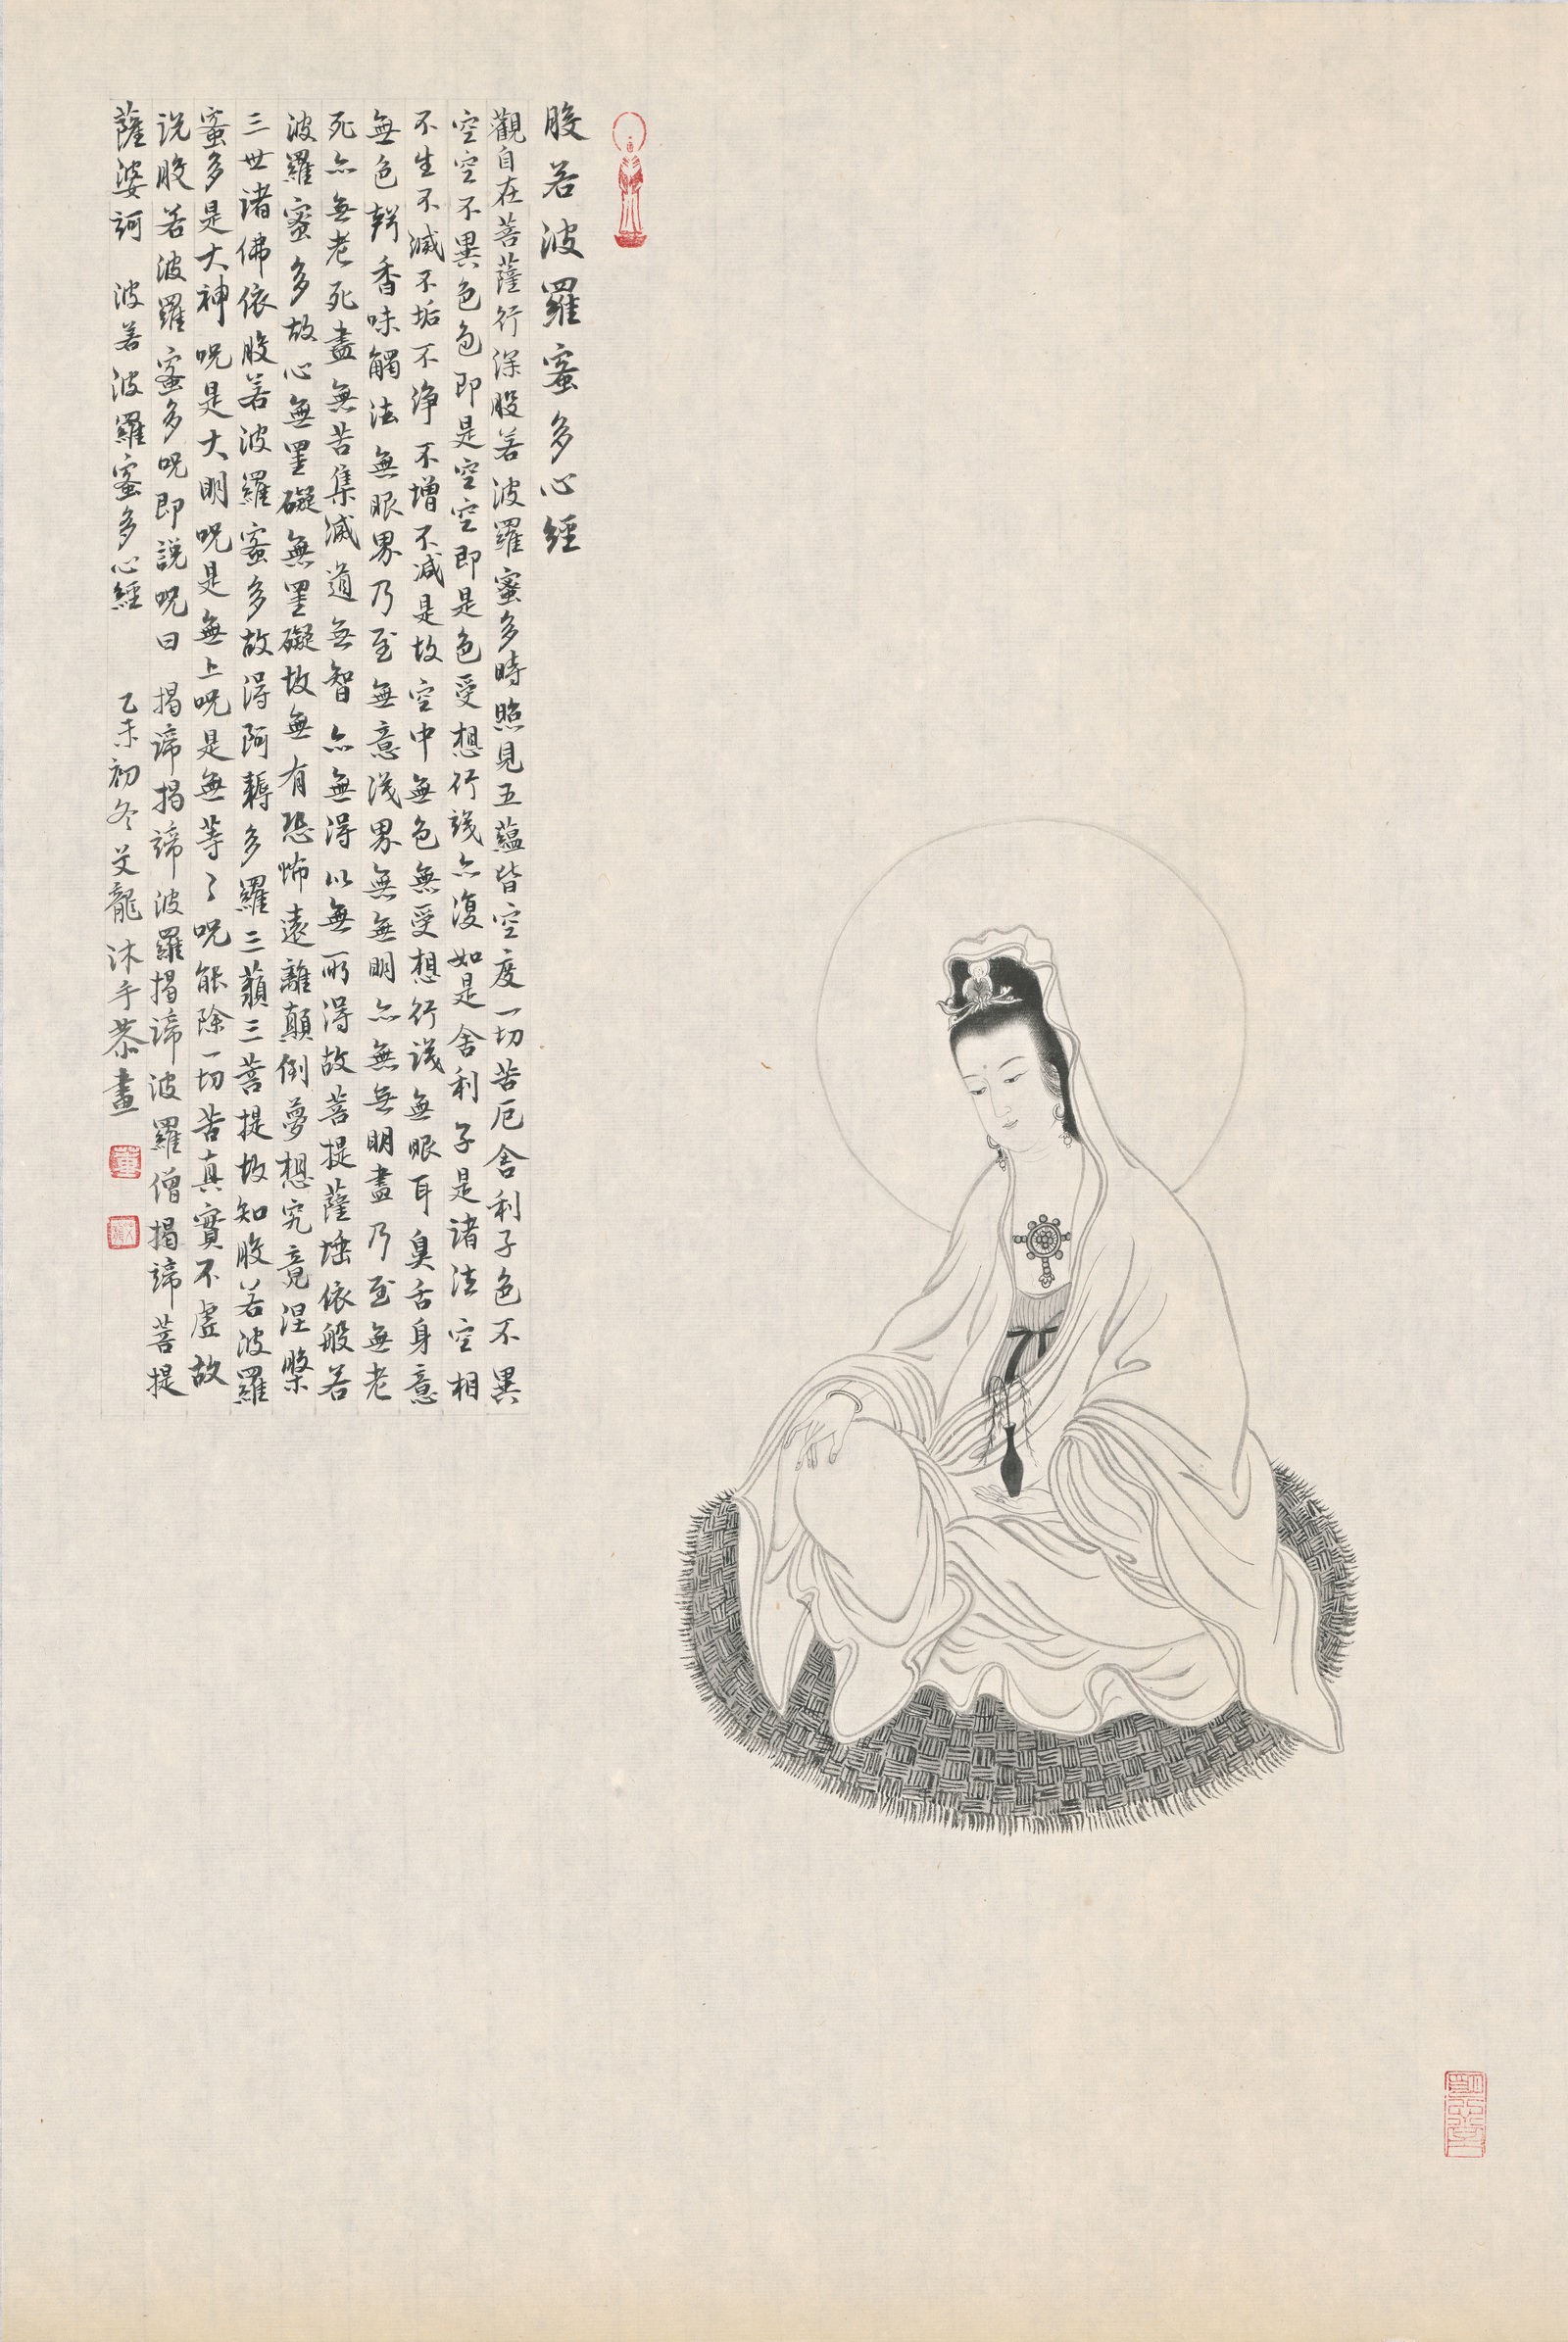 般若波羅蜜多心經
觀自在菩薩行深般若波羅蜜多時照見五蘊皆空度一切苦厄舍利子色不異
空空不異色色即是空空即是色受想行識亦復如是舍利子是諸法空相
不生不滅不垢不淨不增不減是故空中無色無受想行識無眼耳鼻舌身意
無色聲香味觸法無眼界乃至無意識界無無明亦無無明盡乃至無老
死亦無老死盡無苦集滅道無智亦無得以無所得故菩提薩埵依般若
波羅蜜多故心無罣礙無罣礙故無有恐怖遠離顛倒夢想究竟涅槃
三世諸佛依般若波羅蜜多故得阿耨多羅三藐三菩提故知般若波羅
蜜多是大神呪是大明呪是無上呪是無等々呪能除一切苦真實不虛故
説般若波羅蜜多呪即說呪曰 揭諦揭諦波羅揭諦波羅僧揭諦菩提
薩婆訶 波若波羅蜜多心經 乙未初冬文龍沐手恭畫